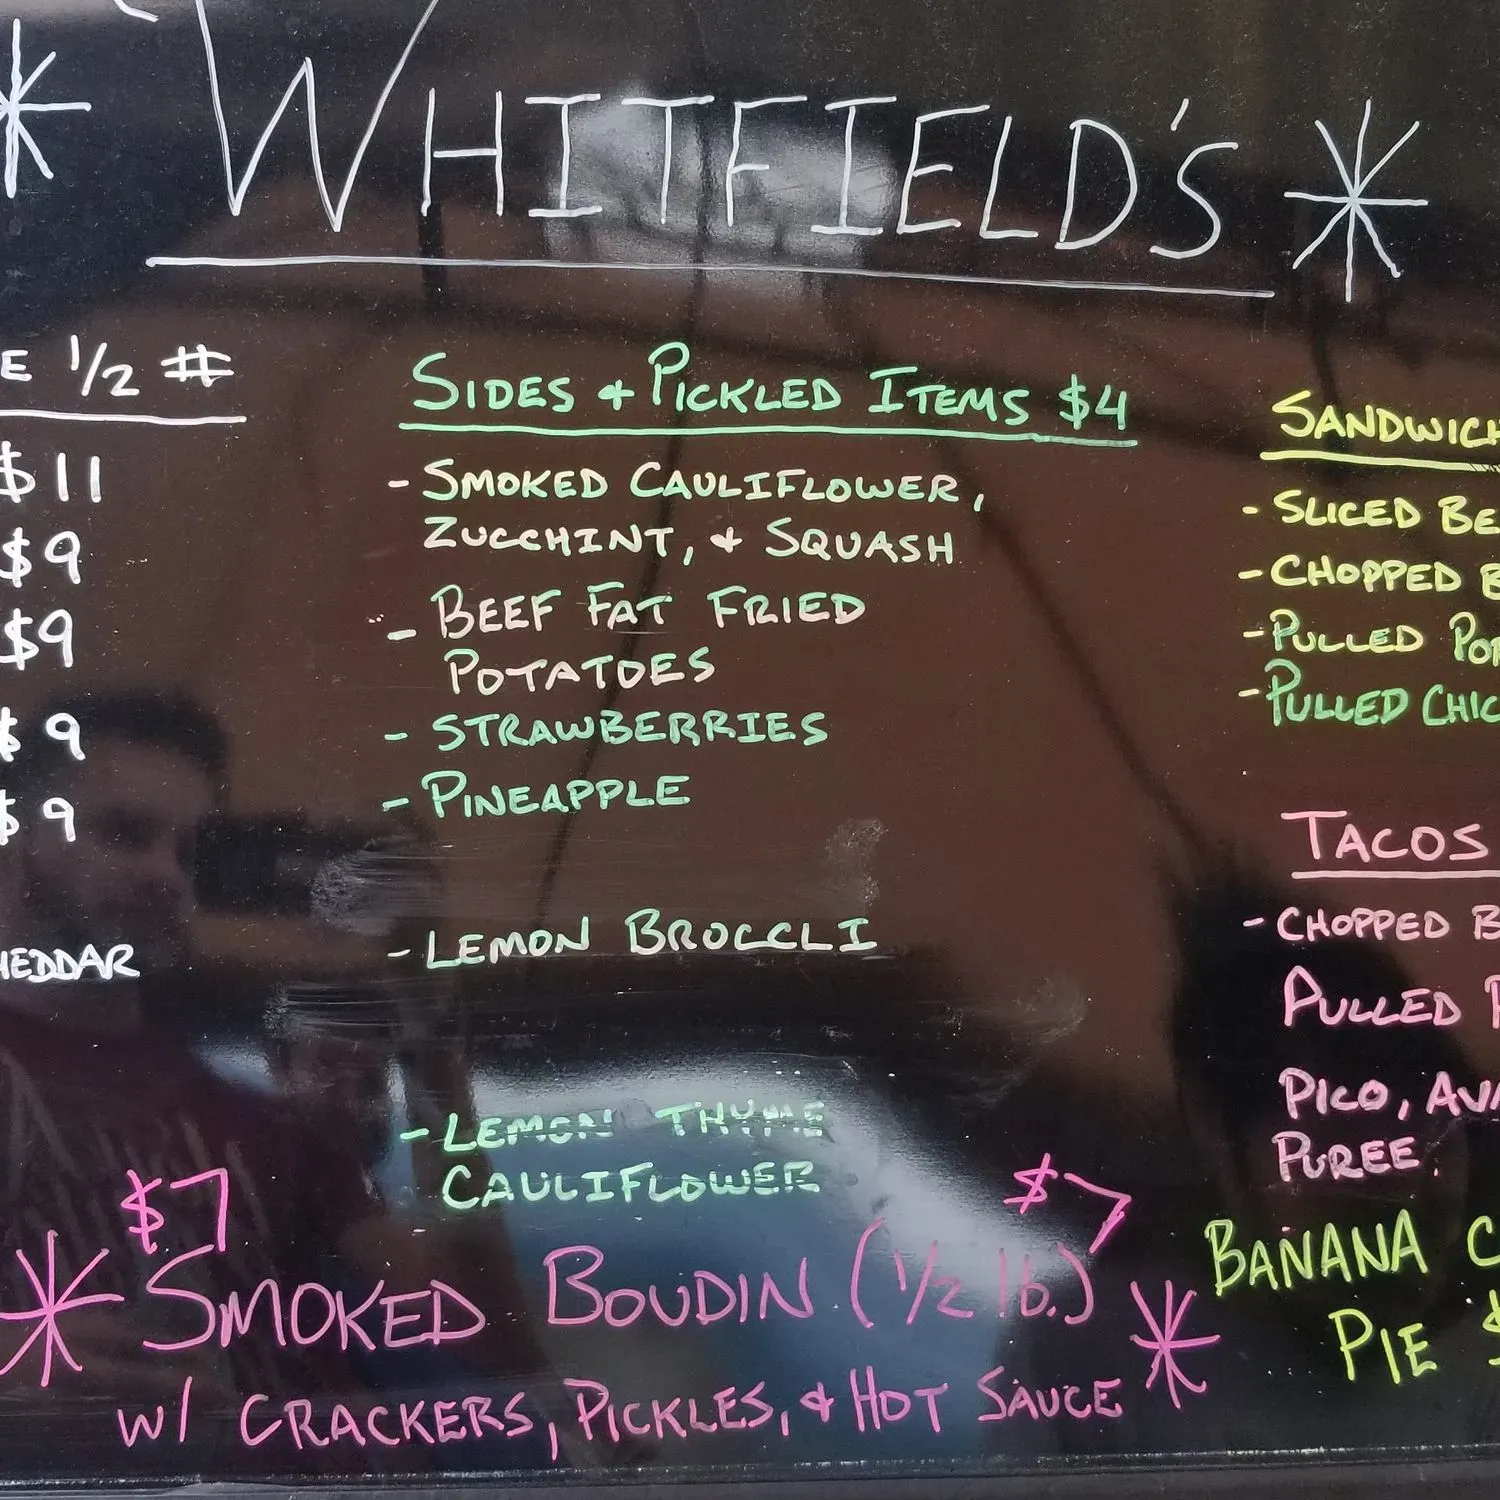 WHITFIELD'S
E 1/2 #
$11
$9
$9
$9
$9
HEDDAR
SIDES & PICKLED ITEMS $4
- SMOKED CAULIFLOWER,
ZUCCHINI, & SQUASH
- BEEF FAT FRIED
POTATOES
- STRAWBERRIES
- PINEAPPLE
- LEMON BROCCLI
- LEMON THYME
CAULIFLOWER
SANDWICH
- SLICED BE
- CHOPPED B
- PULLED POR
- PULLED CHIC
TACOS
- CHOPPED B
PULLED P
PICO, AVA
PUREE.
BANANA C
PIE $
$7 $7
SMOKED BOUDIN (1/2 lb.)
W/ CRACKERS, PICKLES, & HOT SAUCE